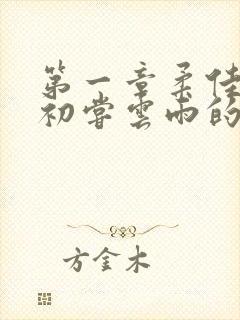 第一章柔佳
初尝云雨的
方金木